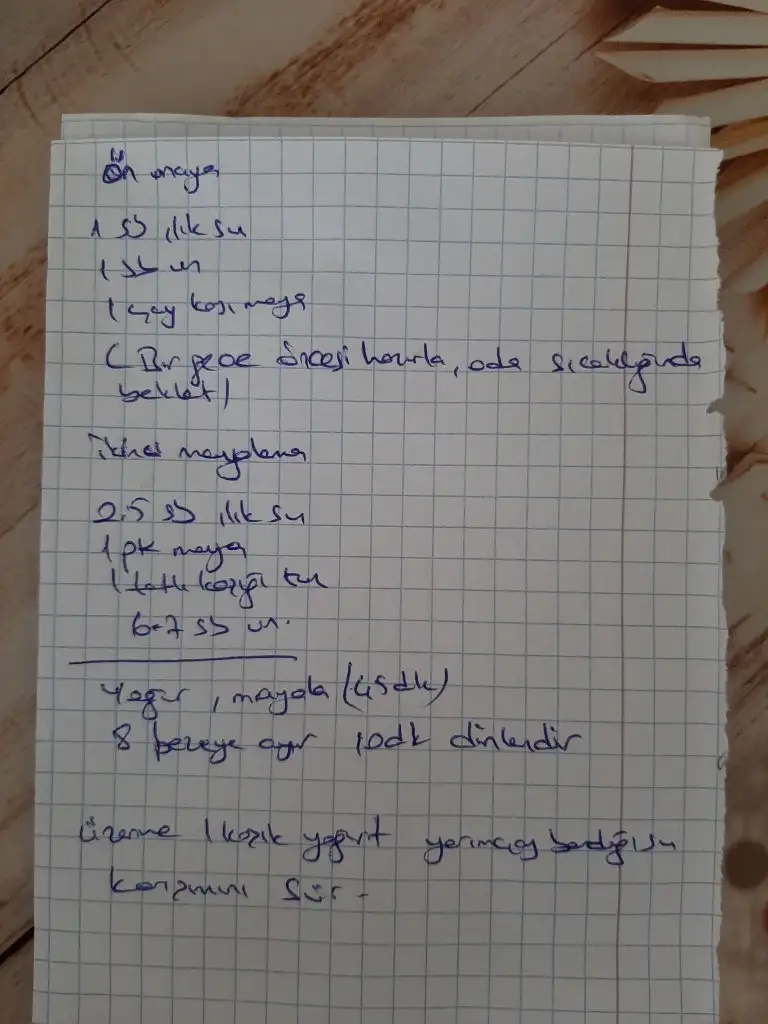 Ön maya
1 sb ılık su
1 sb un
1 çay kaşı maya
( Bir gece öncesi hazırla, oda sıcaklığında
beklet)
ikinci mayalama
2.5 sb ılık su
1 pk maya
1 tatlı kaşığı tuz
6-7 sb un.
Yoğur, mayala (45dk)
8 bezeye ayır 10dk dinlendir
üzerine 1 kaşık yoğurt yarım çay bardağı su
karışımını sür -